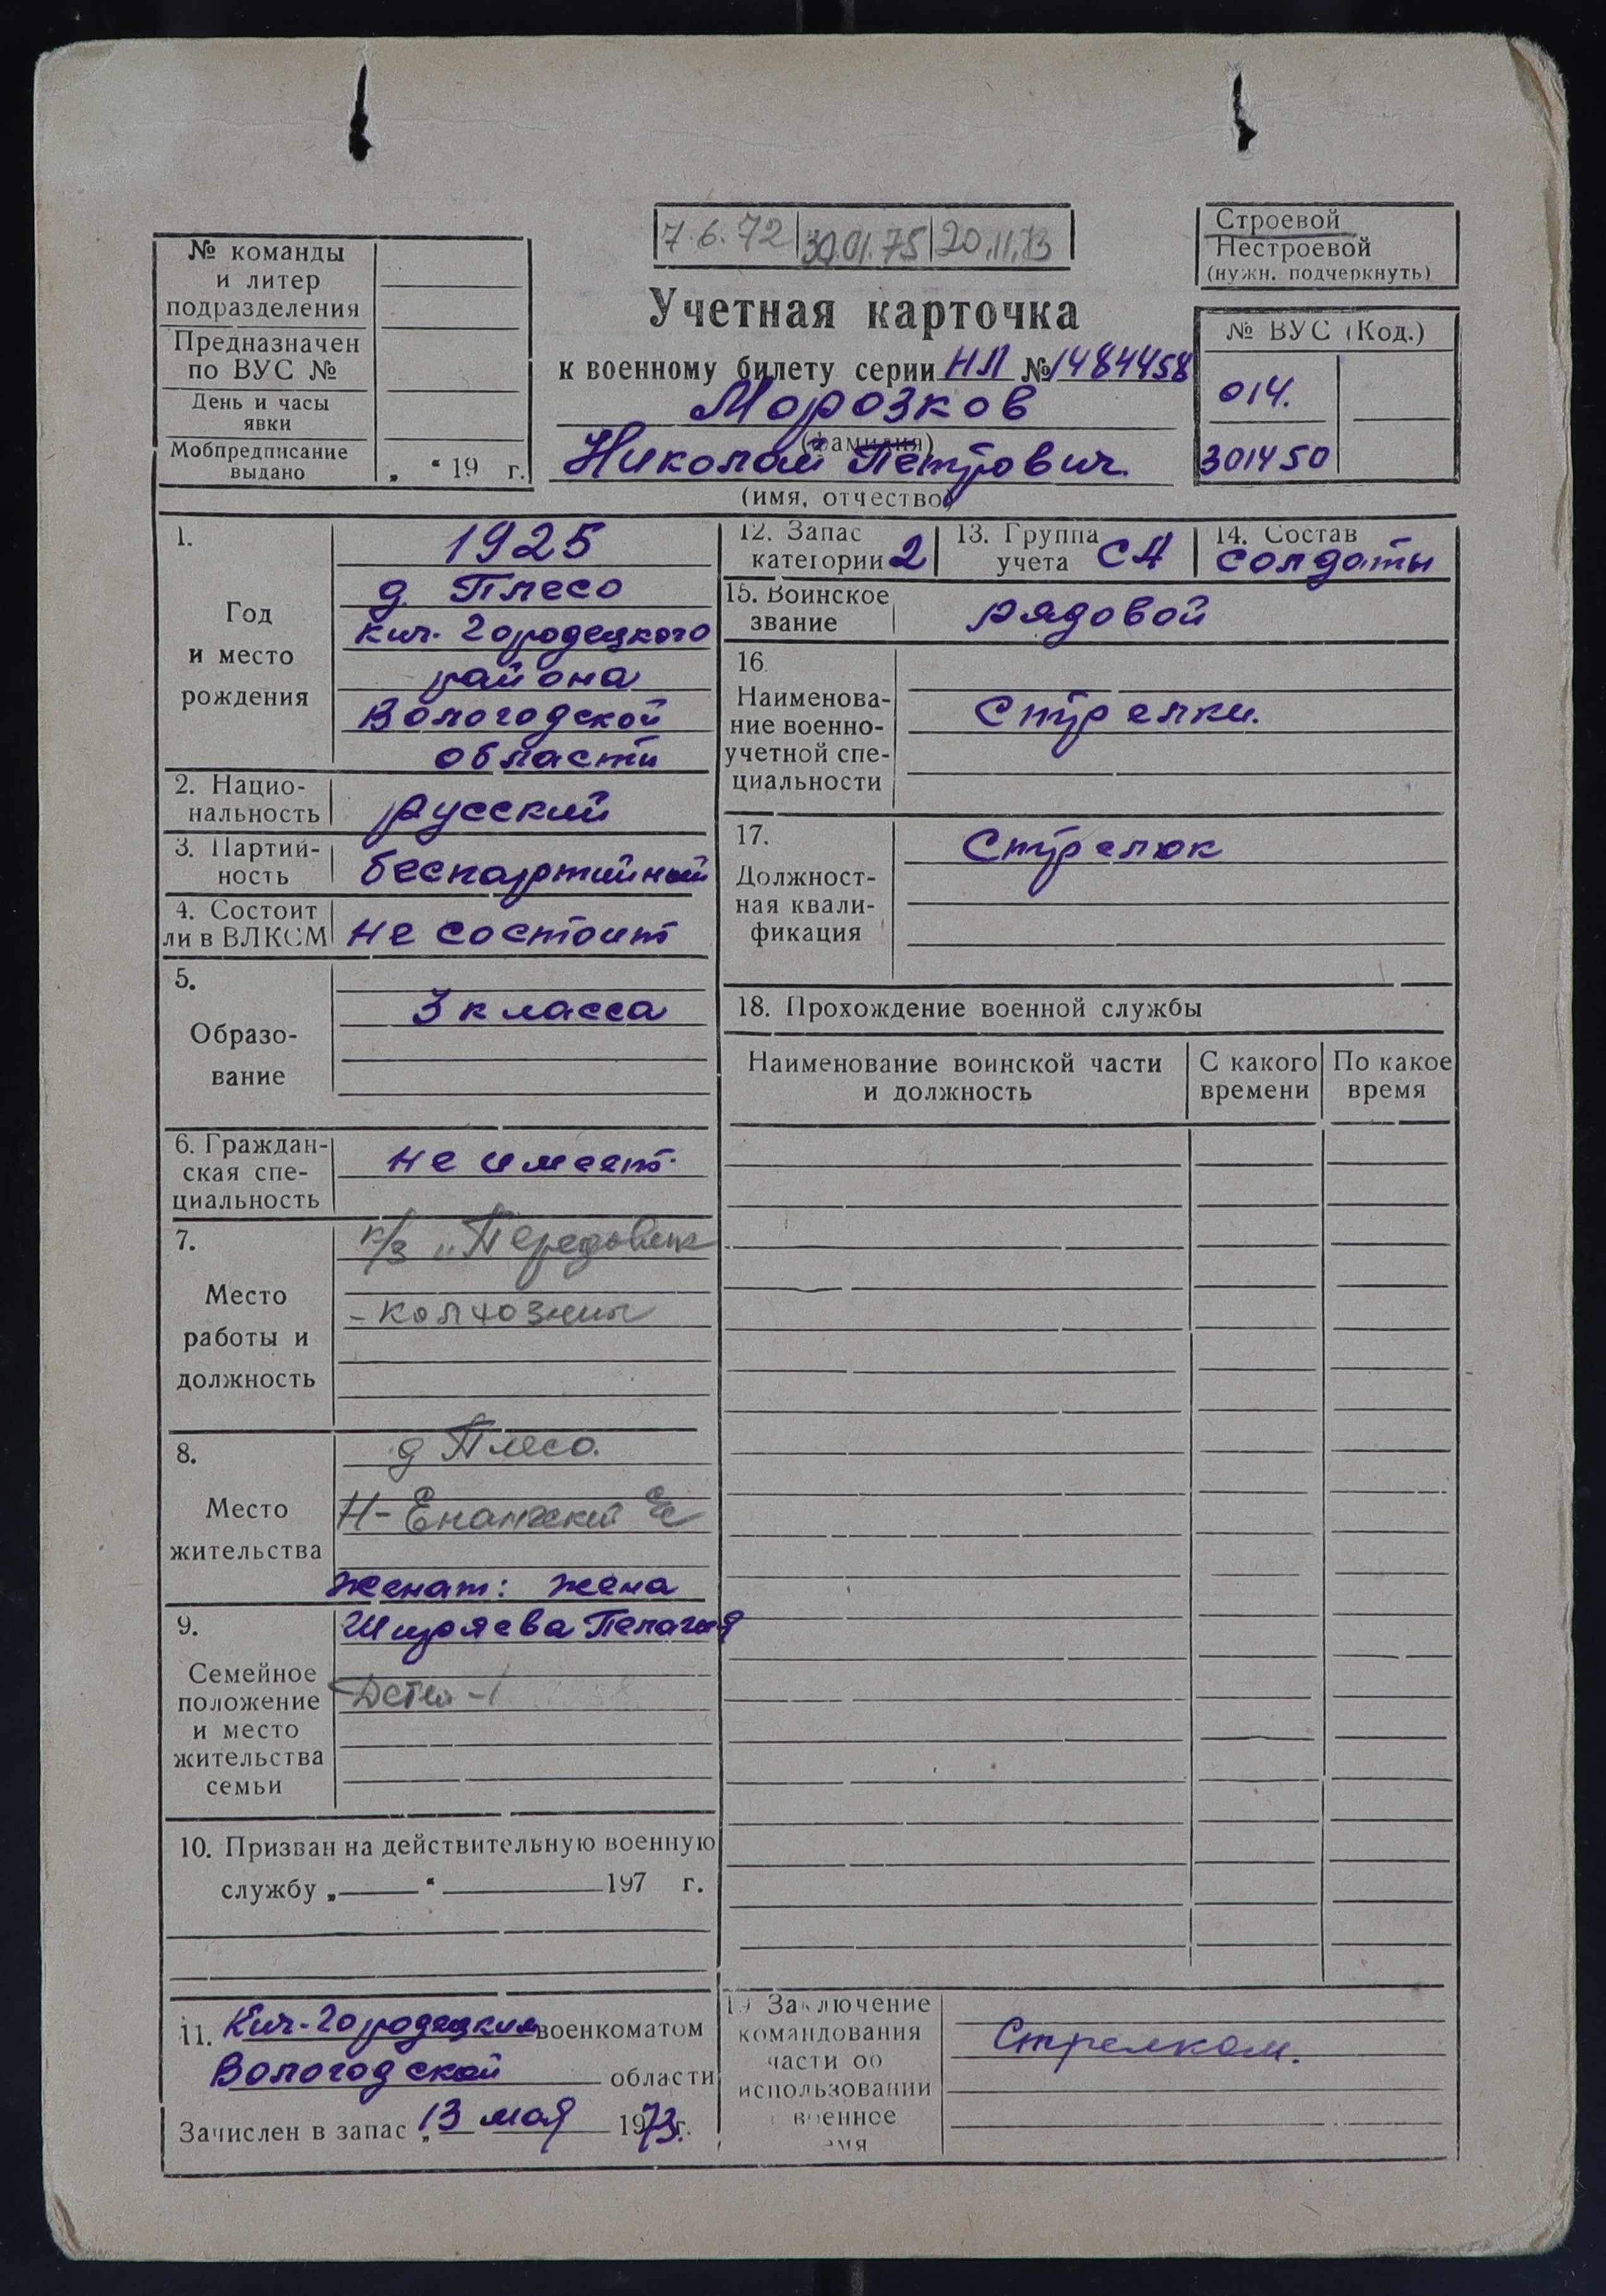 7.6.72 30.01.75 20.11.73
Строевой
Нестроевой
(нужн. подчеркнуть)
№ команды
и литер
подразделения
Предназначен
по ВУС №
День и часы
явки
Мобпредписание
выдано „ “ 19 г.
Учетная карточка
к военному билету серии НЛ № 1484458
Морозков
(фамилия)
Николай Петрович.
(имя, отчество)
№ ВУС (Код.)
014.
301450
1.
Год
и место
рождения
1925
д. Плесо
Кич. Городецкого
района
Вологодской
области
2. Нацио-
нальность
русский
3. Партий-
ность
беспартийный
4. Состоит
ли в ВЛКСМ
не состоит
5.
Образо-
вание
3 класса
6. Граждан-
ская спе-
циальность
не имеет.
7.
Место
работы и
должность
к/з „Передовик
- колхозник
8.
Место
жительства
д Плесо.
Н-Енангский
женат: жена
9.
Семейное
положение
и место
жительства
семьи
Ширяева Пелагия
Детей - 1
10. Призван на действительную военную
службу „ “ 197 г.
11. Кич-Городецким военкоматом
Вологодской области
Зачислен в запас „13 мая 1973 г.
12. Запас
категории 2
13. Группа
учета СА
14. Состав
солдаты
15. Воинское
звание
рядовой
16.
Наименова-
ние военно-
учетной спе-
циальности
Стрелки.
17.
Должност-
ная квали-
фикация
Стрелок
18. Прохождение военной службы
Наименование воинской части
и должность
С какого
времени
По какое
время
19 Заключение
командования
части об
использовании
в военное
время
Стрелком.